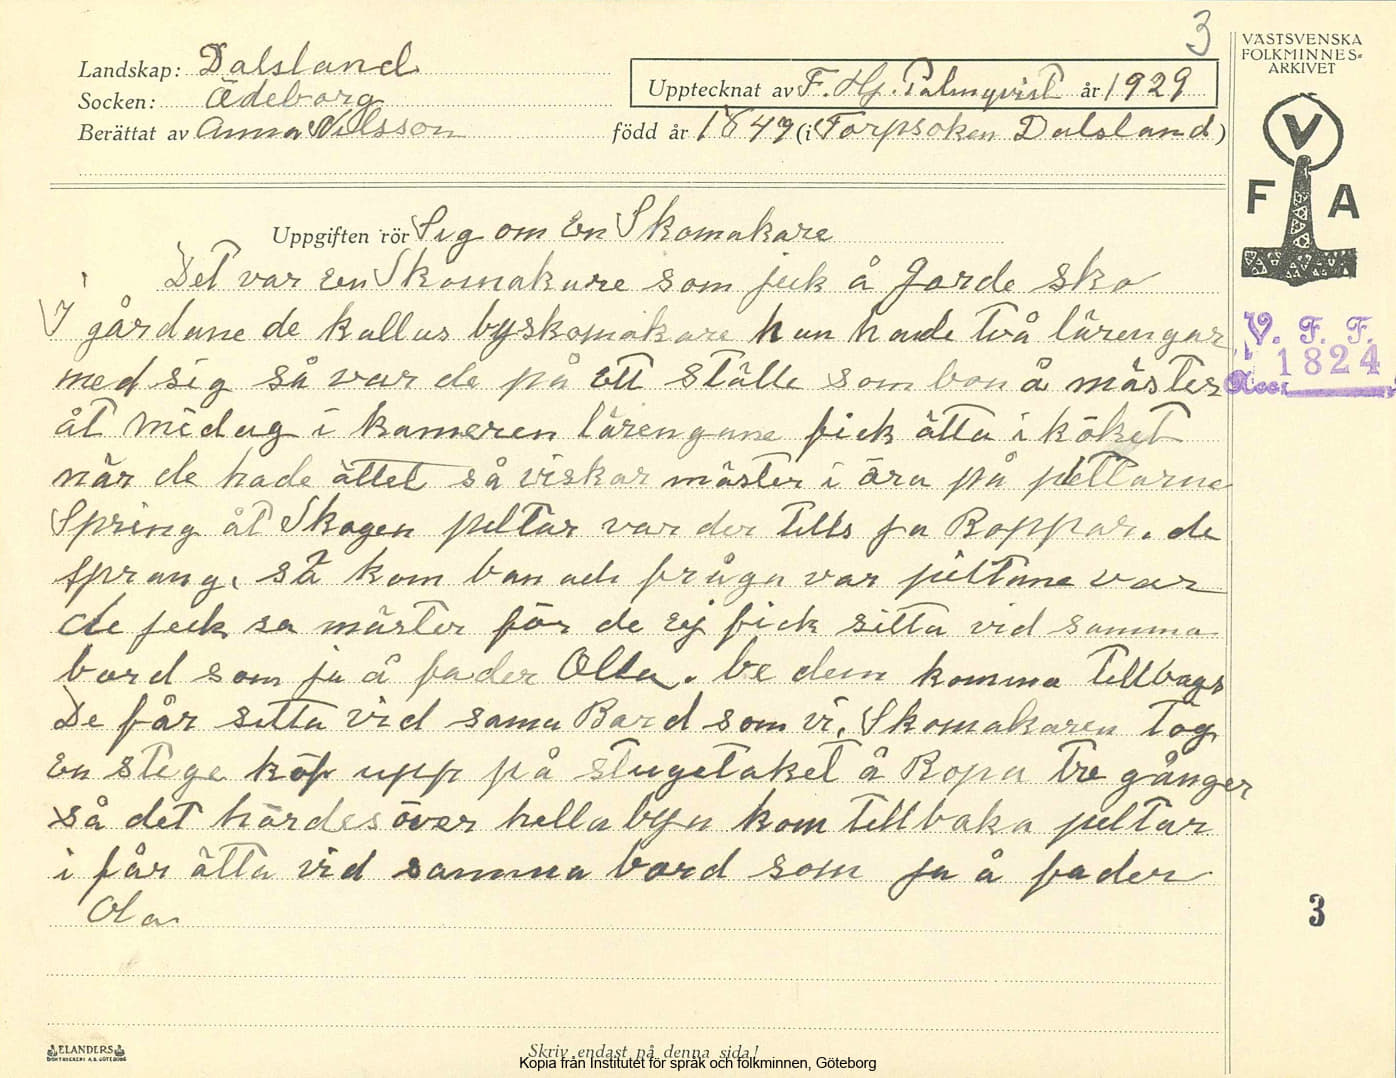 3
Landskap: Dalsland
Socken: Ädeborg
Berättat av Anna Nilsson
Upptecknat av F. Hj. Palmqvist år 1929
född år 1849 (i Torpsoken Dalsland)
VÄSTSVENSKA
FOLKMINNES-
ARKIVET
V
F A
Uppgiften rör Sig om En Skomakare
Det var En Skomakare som jeck å Jorde sko
I gårdane de kallas byskomakare han hade två lärengar
med sig så var de på ett ställe som bon å mäster
åt midag i kameren lärengane fick ätta i köket
når de hade ättet så viskar mäster i öra på piltarne
Spring åt Skogen piltar var der tills ja Roppar. de
sprang. så kom bon och fråga var piltane var
de jeck sa mäster för de ej fick sitta vid samma
bord som ja å fader Olla. be dem komma tillbags
De får sitta vid sama Bord som vi. Skomakaren tog
En stege köp upp på stugetaket å Ropa tre gånger
så det hördes över hella byn kom tillbaka piltar
i får ätta vid samma bord som ja å fader
Ola
V. F. F.
Acc. 1824
3
ELANDERS
BOKTRYCKERI A.B. GÖTEBORG
Skriv endast på denna sida!
Kopia från Institutet för språk och folkminnen, Göteborg